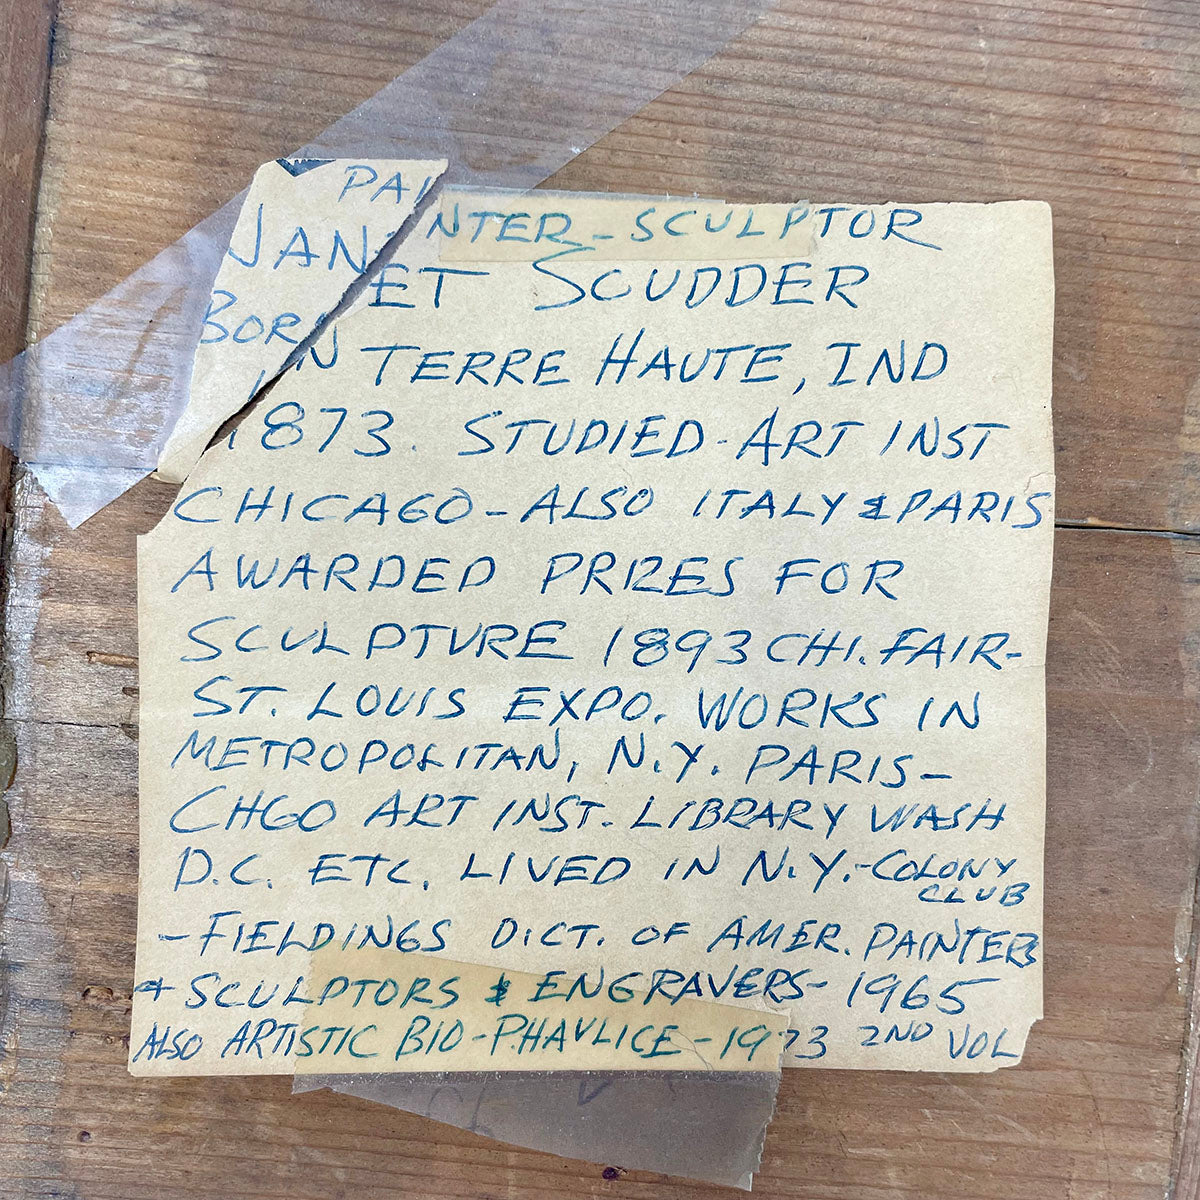 PAINTER - SCULPTOR
JANET SCUDDER
BORN IN TERRE HAUTE, IND
1873. STUDIED - ART INST
CHICAGO - ALSO ITALY & PARIS
AWARDED PRIZES FOR
SCULPTURE 1893 CHI. FAIR -
ST. LOUIS EXPO. WORKS IN
METROPOLITAN, N.Y. PARIS -
CHGO ART INST. LIBRARY WASH
D.C. ETC. LIVED IN N.Y. - COLONY
CLUB
- FIELDINGS DICT. OF AMER. PAINTERS
& SCULPTORS & ENGRAVERS - 1965
ALSO ARTISTIC BIO - P. HAVLICE - 1973 2ND VOL